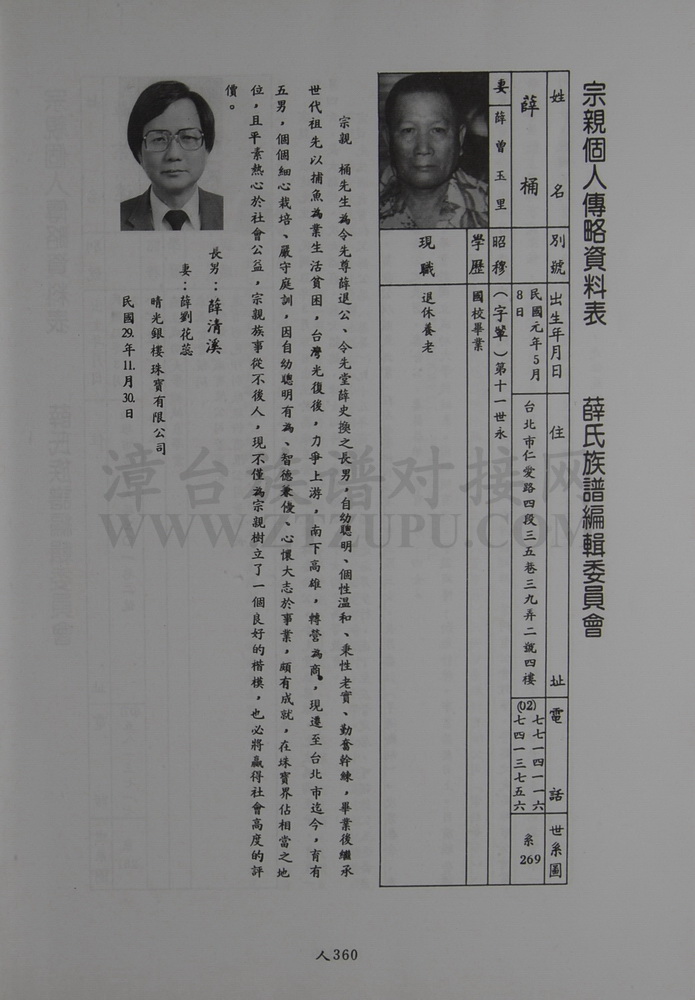 宗親個人傳略資料表　薛氏族譜編輯委員會
姓名　別號　出生年月日　住址　電話　世系圖
薛桶　民國元年5月8日　台北市仁愛路四段三五巷三九弄二號四樓　(02)七七一四一一六　七四一三七五六　系269
妻　薛曾玉里　昭穆（字輩）第十一世永
學歷　國校畢業
現職　退休養老
宗親　桶先生為令先尊薛退公、令先堂薛史換之長男，自幼聰明、個性溫和、秉性老實、勤奮幹練，畢業後繼承
世代祖先以捕魚為業生活貧困，台灣光復後，力爭上游，南下高雄，轉營為商，現遷至台北市迄今，育有
五男，個個細心栽培、嚴守庭訓，因自幼聰明有為、智德兼優、心懷大志於事業，頗有成就，在珠寶界佔相當之地
位，且平素熱心於社會公益，宗親族事從不後人，現不僅為宗親樹立了一個良好的楷模，也必將贏得社會高度的評
價。
長男：薛清溪
妻：薛劉花蕊
晴光銀樓珠寶有限公司
民國29年11月30日
人360
漳台族谱对接网
WWW.ZTZUPU.COM